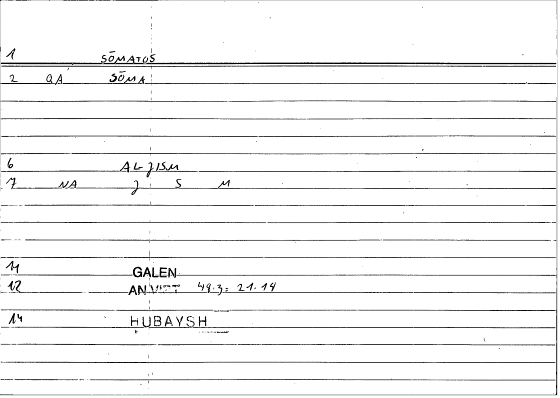 1 SŌMATOS
2 QA SŌMA
6 AL JISM
7 NA J S M
11 GALEN
12 49.3: 21.14
14 HUBAYSH